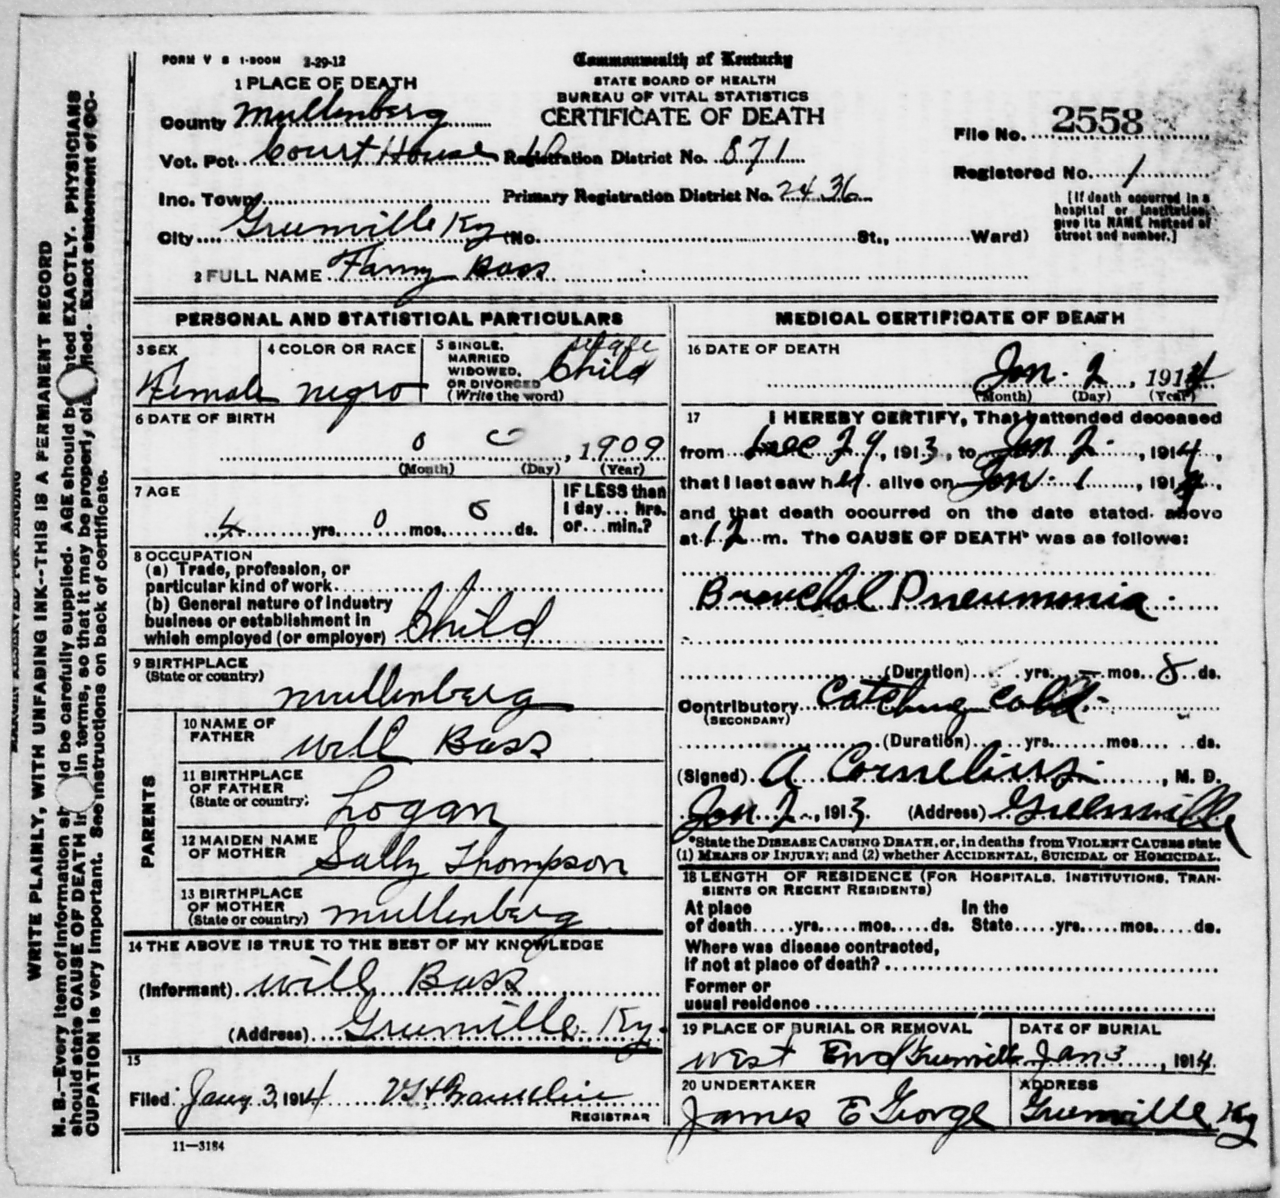 FORM V S 1-500M 3-29-12
Commonwealth of Kentucky
STATE BOARD OF HEALTH
BUREAU OF VITAL STATISTICS
CERTIFICATE OF DEATH
1 PLACE OF DEATH
County Mullenberg
Vot. Pct. Court House
Inc. Town
City Greenville Ky (No. St., Ward)
Registration District No. 871
Primary Registration District No. 2436
File No. 2558
Registered No. 1
[If death occurred in a
hospital or institution,
give its NAME instead of
street and number.]
2 FULL NAME Fanny Bass
PERSONAL AND STATISTICAL PARTICULARS
3 SEX
Female
4 COLOR OR RACE
negro
5 SINGLE,
MARRIED
WIDOWED,
OR DIVORCED
(Write the word)
Child
6 DATE OF BIRTH
0 0, 1909
(Month) (Day) (Year)
7 AGE
4 yrs. 0 mos. ds.
IF LESS than
1 day... hrs.
or... min.?
8 OCCUPATION
(a) Trade, profession, or
particular kind of work
(b) General nature of industry
business or establishment in
which employed (or employer) Child
9 BIRTHPLACE
(State or country)
Mullenberg
PARENTS
10 NAME OF
FATHER
Will Bass
11 BIRTHPLACE
OF FATHER
(State or country)
Logan
12 MAIDEN NAME
OF MOTHER
Sally Thompson
13 BIRTHPLACE
OF MOTHER
(State or country)
Mullenberg
14 THE ABOVE IS TRUE TO THE BEST OF MY KNOWLEDGE
(Informant) Will Bass
(Address) Greenville Ky.
15
Filed Jany 3, 1914
REGISTRAR
11-3184
MEDICAL CERTIFICATE OF DEATH
16 DATE OF DEATH
Jan. 2, 1914
(Month) (Day) (Year)
17 I HEREBY CERTIFY, That I attended deceased
from Dec 29, 1913, to Jan 2, 1914,
that I last saw her alive on Jan 1, 1914,
and that death occurred on the date stated above
at 12 m. The CAUSE OF DEATH* was as follows:
Bronchal Pneumonia
(Duration) yrs. mos. 8 ds.
Contributory Catching Cold
(SECONDARY)
(Duration) yrs. mos. ds.
(Signed) A Cornelius, M. D.
Jan 2, 1913 (Address) Greenville
*State the DISEASE CAUSING DEATH, or, in deaths from VIOLENT CAUSES state
(1) MEANS OF INJURY; and (2) whether ACCIDENTAL, SUICIDAL or HOMICIDAL.
18 LENGTH OF RESIDENCE (FOR HOSPITALS, INSTITUTIONS, TRAN-
SIENTS OR RECENT RESIDENTS)
At place
of death yrs. mos. ds.
In the
State yrs. mos. ds.
Where was disease contracted,
if not at place of death?
Former or
usual residence
19 PLACE OF BURIAL OR REMOVAL
West End Greenville
DATE OF BURIAL
Jan 3, 1914
20 UNDERTAKER
James E George
ADDRESS
Greenville Ky
MARGIN RESERVED FOR BINDING
WRITE PLAINLY, WITH UNFADING INK--THIS IS A PERMANENT RECORD
N. B.--Every item of information should be carefully supplied. AGE should be stated EXACTLY. PHYSICIANS
should state CAUSE OF DEATH in plain terms, so that it may be properly classified. Exact statement of OC-
CUPATION is very important. See instructions on back of certificate.